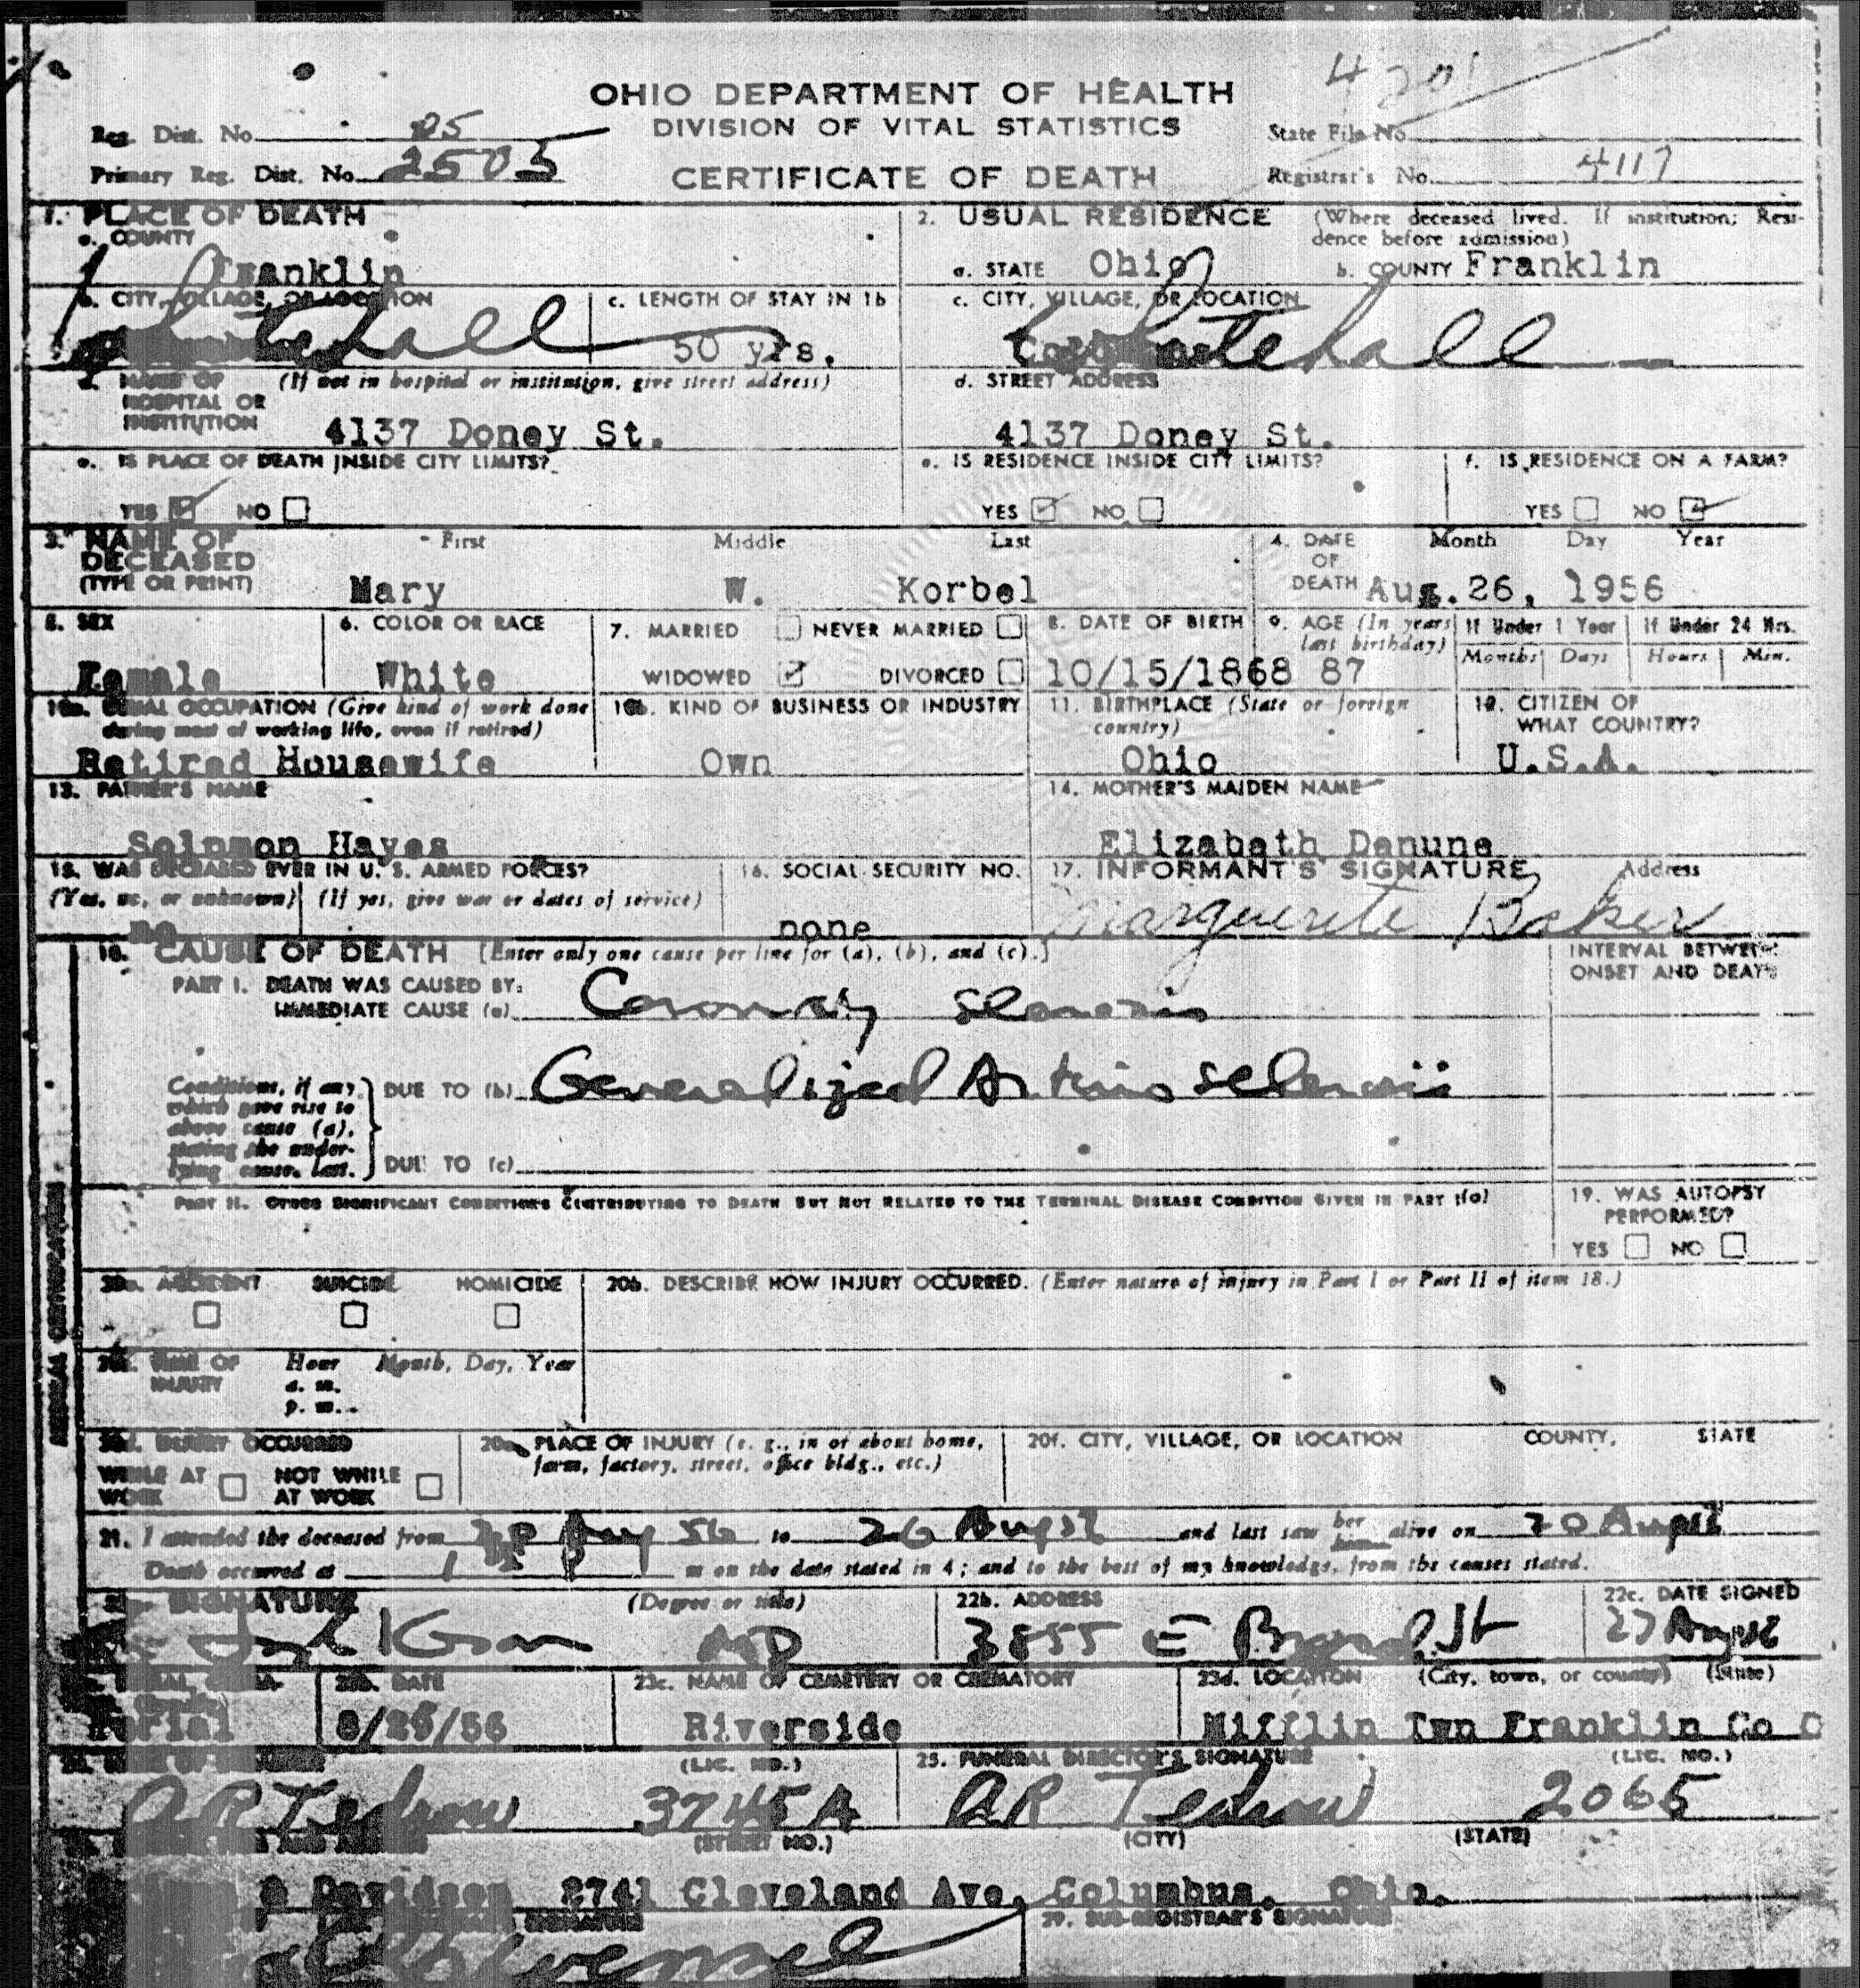 4201
OHIO DEPARTMENT OF HEALTH
DIVISION OF VITAL STATISTICS
CERTIFICATE OF DEATH
Reg. Dist. No. 25
Primary Reg. Dist. No. 2505
State File No.
Registrar's No. 4117
1. PLACE OF DEATH
a. COUNTY
Franklin
2. USUAL RESIDENCE (Where deceased lived. If institution; Resi-
dence before admission)
a. STATE Ohio b. COUNTY Franklin
b. CITY, VILLAGE, OR LOCATION c. LENGTH OF STAY IN 1b
Whitehall 50 yrs.
c. CITY, VILLAGE, OR LOCATION
Whitehall
d. NAME OF (If not in hospital or institution, give street address)
HOSPITAL OR
INSTITUTION 4137 Doney St.
d. STREET ADDRESS
4137 Doney St.
e. IS PLACE OF DEATH INSIDE CITY LIMITS?
YES NO
e. IS RESIDENCE INSIDE CITY LIMITS?
YES NO
f. IS RESIDENCE ON A FARM?
YES NO
3. NAME OF First Middle Last
DECEASED
(TYPE OR PRINT) Mary W. Korbel
4. DATE Month Day Year
OF
DEATH Aug. 26, 1956
5. SEX
Female
6. COLOR OR RACE
White
7. MARRIED NEVER MARRIED
WIDOWED DIVORCED
8. DATE OF BIRTH
10/15/1868
9. AGE (In years
last birthday)
87
If Under 1 Year If Under 24 Hrs.
Months Days Hours Min.
10a. USUAL OCCUPATION (Give kind of work done
during most of working life, even if retired)
Retired Housewife
10b. KIND OF BUSINESS OR INDUSTRY
Own
11. BIRTHPLACE (State or foreign
country)
Ohio
12. CITIZEN OF
WHAT COUNTRY?
U.S.A.
13. FATHER'S NAME
Solomon Hayes
14. MOTHER'S MAIDEN NAME
Elizabeth Danune
15. WAS DECEASED EVER IN U. S. ARMED FORCES?
(Yes, no, or unknown) (If yes, give war or dates of service)
no
16. SOCIAL SECURITY NO.
none
17. INFORMANT'S SIGNATURE Address
Marguerite Baker
18. CAUSE OF DEATH [Enter only one cause per line for (a), (b), and (c).]
INTERVAL BETWEEN
ONSET AND DEATH
PART I. DEATH WAS CAUSED BY:
IMMEDIATE CAUSE (a) Coronary sclerosis
Conditions, if any,
which gave rise to
above cause (a),
stating the under-
lying cause last.
DUE TO (b) Generalized Arterio sclerosis
DUE TO (c)
PART II. OTHER SIGNIFICANT CONDITIONS CONTRIBUTING TO DEATH BUT NOT RELATED TO THE TERMINAL DISEASE CONDITION GIVEN IN PART I(a)
19. WAS AUTOPSY
PERFORMED?
YES NO
20a. ACCIDENT SUICIDE HOMICIDE
20b. DESCRIBE HOW INJURY OCCURRED. (Enter nature of injury in Part I or Part II of item 18.)
20c. TIME OF Hour Month, Day, Year
INJURY a. m.
p. m.
20d. INJURY OCCURRED
WHILE AT NOT WHILE
WORK AT WORK
20e. PLACE OF INJURY (e. g., in or about home,
farm, factory, street, office bldg., etc.)
20f. CITY, VILLAGE, OR LOCATION COUNTY, STATE
MEDICAL CERTIFICATION
21. I attended the deceased from Aug 56 to 26 Aug 56 and last saw her him alive on 20 Aug 56
Death occurred at 1 P m on the date stated in 4; and to the best of my knowledge, from the causes stated.
SIGNATURE (Degree or title)
MD
22b. ADDRESS
3855 E Broad St
22c. DATE SIGNED
27 Aug 56
Burial
23b. DATE
23c. NAME OF CEMETERY OR CREMATORY
Riverside
23d. LOCATION (City, town, or county) (State)
Mifflin Twn Franklin Co O
(LIC. NO.)
AR Tedrow 3745A
25. FUNERAL DIRECTOR'S SIGNATURE (LIC. NO.)
AR Tedrow 2065
(STREET NO.) (CITY) (STATE)
& Davidson 2741 Cleveland Ave, Columbus, Ohio.
SIGNATURE
27. SUB-REGISTRAR'S SIGNATURE